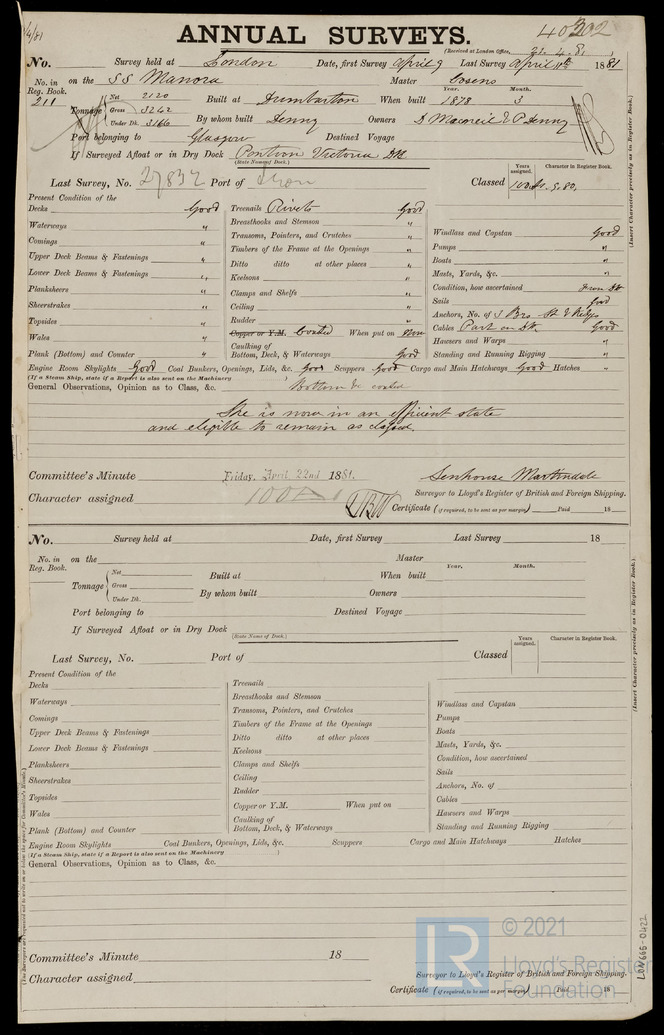 ANNUAL SURVEYS.
4/81
(Received at London Office, 22.4.81
No. Survey held at London Date, first Survey April 9 Last Survey April 11th 1881
No. in Reg. Book. 211 on the SS Manora Master Cosens
Tonnage Net 2120 Gross 3242 Under Dk. 3166
Built at Dumbarton When built Year. 1878 Month. 3
By whom built Denny Owners D Macneil & P Denny
Port belonging to Glasgow Destined Voyage
If Surveyed Afloat or in Dry Dock Pontoon Victoria Dk
(State Name of Dock.)
Last Survey, No. 27832 Port of Classed Years assigned. Character in Register Book.
(Insert Character precisely as in Register Book.)
Present Condition of the
Decks Good
Waterways "
Comings "
Upper Deck Beams & Fastenings "
Lower Deck Beams & Fastenings "
Planksheers "
Sheerstrakes "
Topsides "
Wales "
Plank (Bottom) and Counter "
Treenails Rivets Good
Breasthooks and Stemson "
Transoms, Pointers, and Crutches "
Timbers of the Frame at the Openings "
Ditto ditto at other places "
Keelsons "
Clamps and Shelfs "
Ceiling "
Rudder "
Copper or Y.M. Coated When put on Now
Caulking of
Bottom, Deck, & Waterways Good
Windlass and Capstan Good
Pumps "
Boats "
Masts, Yards, &c. "
Condition, how ascertained From Dk
Sails Good
Anchors, No. of 3 Bro. St & Kedge
Cables Part on Dk Good
Hawsers and Warps "
Standing and Running Rigging "
Engine Room Skylights Good Coal Bunkers, Openings, Lids, &c. Good Scuppers Good Cargo and Main Hatchways Good Hatches "
(If a Steam Ship, state if a Report is also sent on the Machinery )
General Observations, Opinion as to Class, &c. Bottom &c coated
She is now in an efficient state
and eligible to remain as classed.
Committee's Minute Friday, April 22nd 1881. Senhouse Martindale
Character assigned 100A Surveyor to Lloyd's Register of British and Foreign Shipping.
Certificate (if required, to be sent as per margin) Paid 18
No. Survey held at Date, first Survey Last Survey 18
No. in Reg. Book. on the Master
Tonnage Net Gross Under Dk.
Built at When built Year. Month.
By whom built Owners
Port belonging to Destined Voyage
If Surveyed Afloat or in Dry Dock
(State Name of Dock.)
Last Survey, No. Port of Classed Years assigned. Character in Register Book.
(Insert Character precisely as in Register Book.)
Present Condition of the
Decks
Waterways
Comings
Upper Deck Beams & Fastenings
Lower Deck Beams & Fastenings
Planksheers
Sheerstrakes
Topsides
Wales
Plank (Bottom) and Counter
Treenails
Breasthooks and Stemson
Transoms, Pointers, and Crutches
Timbers of the Frame at the Openings
Ditto ditto at other places
Keelsons
Clamps and Shelfs
Ceiling
Rudder
Copper or Y.M. When put on
Caulking of
Bottom, Deck, & Waterways
Windlass and Capstan
Pumps
Boats
Masts, Yards, &c.
Condition, how ascertained
Sails
Anchors, No. of
Cables
Hawsers and Warps
Standing and Running Rigging
Engine Room Skylights Coal Bunkers, Openings, Lids, &c. Scuppers Cargo and Main Hatchways Hatches
(If a Steam Ship, state if a Report is also sent on the Machinery )
General Observations, Opinion as to Class, &c.
Committee's Minute 18
Character assigned
Surveyor to Lloyd's Register of British and Foreign Shipping.
Certificate (if required, to be sent as per margin) Paid 18
(The Surveyors are requested not to write on or below the space for Committee's Minute.)
LR © 2021
Lloyd's Register
Foundation
LON665-0422